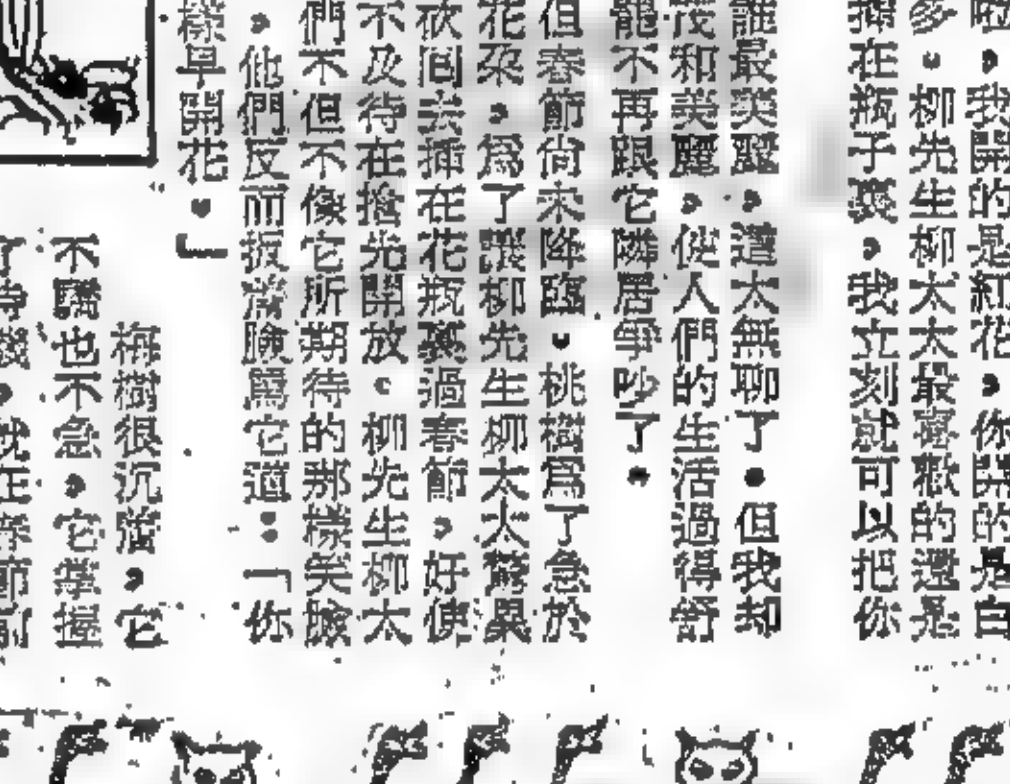 啦，我開的是紅花，你開的是白
多。柳先生柳太太最喜歡的還是
插在瓶子裏，我立刻就可以把你
誰最美麗，這太無聊了。但我却
茂和美麗，使人們的生活過得舒
龍不再跟它隣居爭吵了。
但春節尚未降臨。桃樹爲了急於
花朶，爲了讓柳先生柳太太
砍囘去插在花瓶裏過春節，好使
不及待在搶先開放。柳先生柳太
們不但不像它所期待的那樣笑臉
，他們反而扳滿臉罵它道：「你
樣早開花。」
梅樹很沉着，它
不驕也不急，它掌握